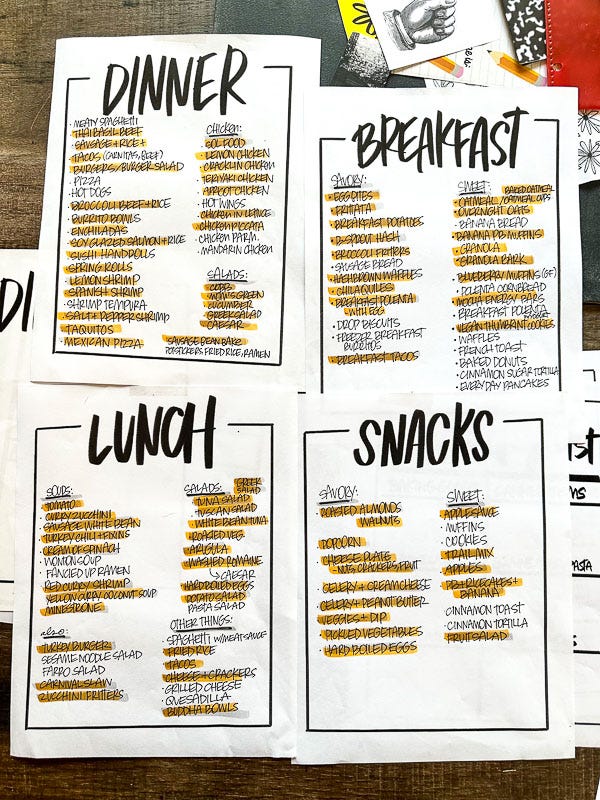 DINNER
· MEATY SPAGHETTI
· THAI BASIL BEEF
· SAUSAGE + RICE +
· TACOS (CARNITAS, BEEF)
· BURGERS/BURGER SALAD
· PIZZA
· HOT DOGS
· BROCCOLI BEEF + RICE
· BURRITO BOWLS
· ENCHILADAS
· SOY GLAZED SALMON + RICE
· SUSHI HANDROLLS
· SPRING ROLLS
· LEMON SHRIMP
· SPANISH SHRIMP
· SHRIMP TEMPURA
· SALT + PEPPER SHRIMP
· TAQUITOS
· MEXICAN PIZZA
CHICKEN:
· SOL FOOD
· LEMON CHICKEN
· CRACKLIN CHICKEN
· TERIYAKI CHICKEN
· APRICOT CHICKEN
· HOT WINGS
· CHICKEN IN LETTUCE
· CHICKEN PICCATA
· CHICKEN PARM.
· MANDARIN CHICKEN
SALADS:
· COBB
· MIMI'S GREEN
· CUCUMBER
· GREEK SALAD
· CAESAR
SAUSAGE BEAN BAKE
POTSTICKERS, FRIED RICE, RAMEN
BREAKFAST
SAVORY:
· EGG BITES
· FRITTATA
· BREAKFAST POTATOES
· D-SPOUT HASH
· BROCCOLI FRITTERS
· SAUSAGE BREAD
· HASHBROWN WAFFLES
· CHILAQUILES
· BREAKFAST POLENTA
WITH EGG
· DROP BISCUITS
· FREEZER BREAKFAST
BURRITOS
· BREAKFAST TACOS
SWEET:
BAKED OATMEAL
· OATMEAL/OATMEAL CUPS
· OVERNIGHT OATS
· BANANA BREAD
· BANANA PB MUFFINS
· GRANOLA
· GRANOLA BARK
· BLUEBERRY MUFFINS (GF)
· POLENTA CORNBREAD
· MOCHA ENERGY BARS
· BREAKFAST POLENTA
· VEGAN THUMBPRINT COOKIES
· WAFFLES
· FRENCH TOAST
· BAKED DONUTS
· CINNAMON SUGAR TORTILLA
· EVERY DAY PANCAKES
LUNCH
SOUPS:
· TOMATO
· CURRY ZUCCHINI
· SAUSAGE WHITE BEAN
· TURKEY CHILI + FIXINS
· CREAM OF SPINACH
· WONTON SOUP
· FANCIED UP RAMEN
· RED CURRY SHRIMP
· YELLOW CURRY COCONUT SOUP
· MINESTRONE
also:
· TURKEY BURGER
· SESAME NOODLE SALAD
· FARRO SALAD
· CARNIVAL SLAW
· ZUCCHINI FRITTERS
SALADS:
GREEK
SALAD
· TUNA SALAD
· TUSCAN SALAD
· WHITE BEAN TUNA
· ROASTED VEG.
· ARUGULA
· WASHED ROMAINE
CAESAR
· HARD BOILED EGGS
· POTATO SALAD
· PASTA SALAD
OTHER THINGS:
· SPAGHETTI W/MEAT SAUCE
· FRIED RICE
· TACOS
· CHEESE + CRACKERS
· GRILLED CHEESE
· QUESADILLA
· BUDDHA BOWLS
SNACKS
SAVORY:
· ROASTED ALMONDS
WALNUTS
· POPCORN
· CHEESE PLATE
- NUTS, CRACKERS, FRUIT
· CELERY + CREAM CHEESE
· CELERY + PEANUT BUTTER
· VEGGIES + DIP
· PICKLED VEGETABLES
· HARD BOILED EGGS
SWEET:
· APPLESAUCE
· MUFFINS
· COOKIES
· TRAIL MIX
· APPLES
· PB + RICECAKES +
BANANA
· CINNAMON TOAST
· CINNAMON TORTILLA
· FRUIT SALAD
DI
PASTA